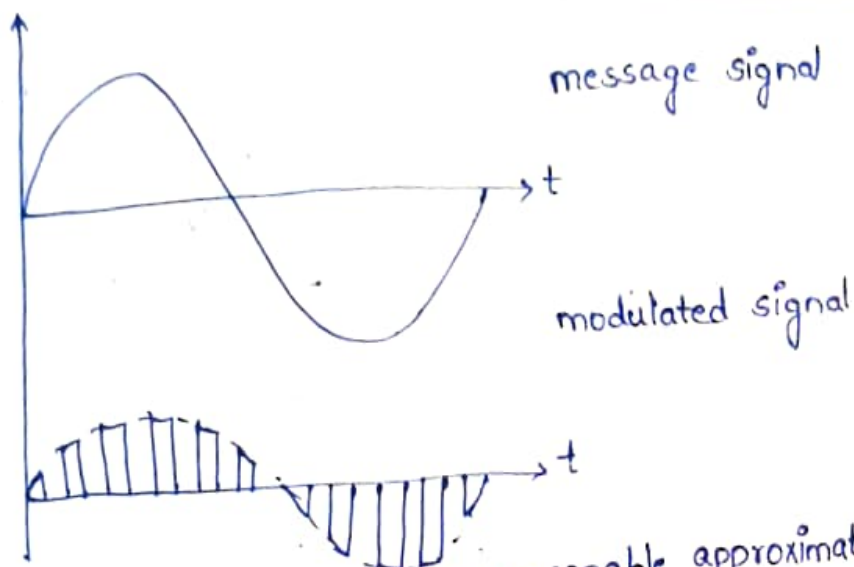 message signal
t
modulated signal
t
approximat